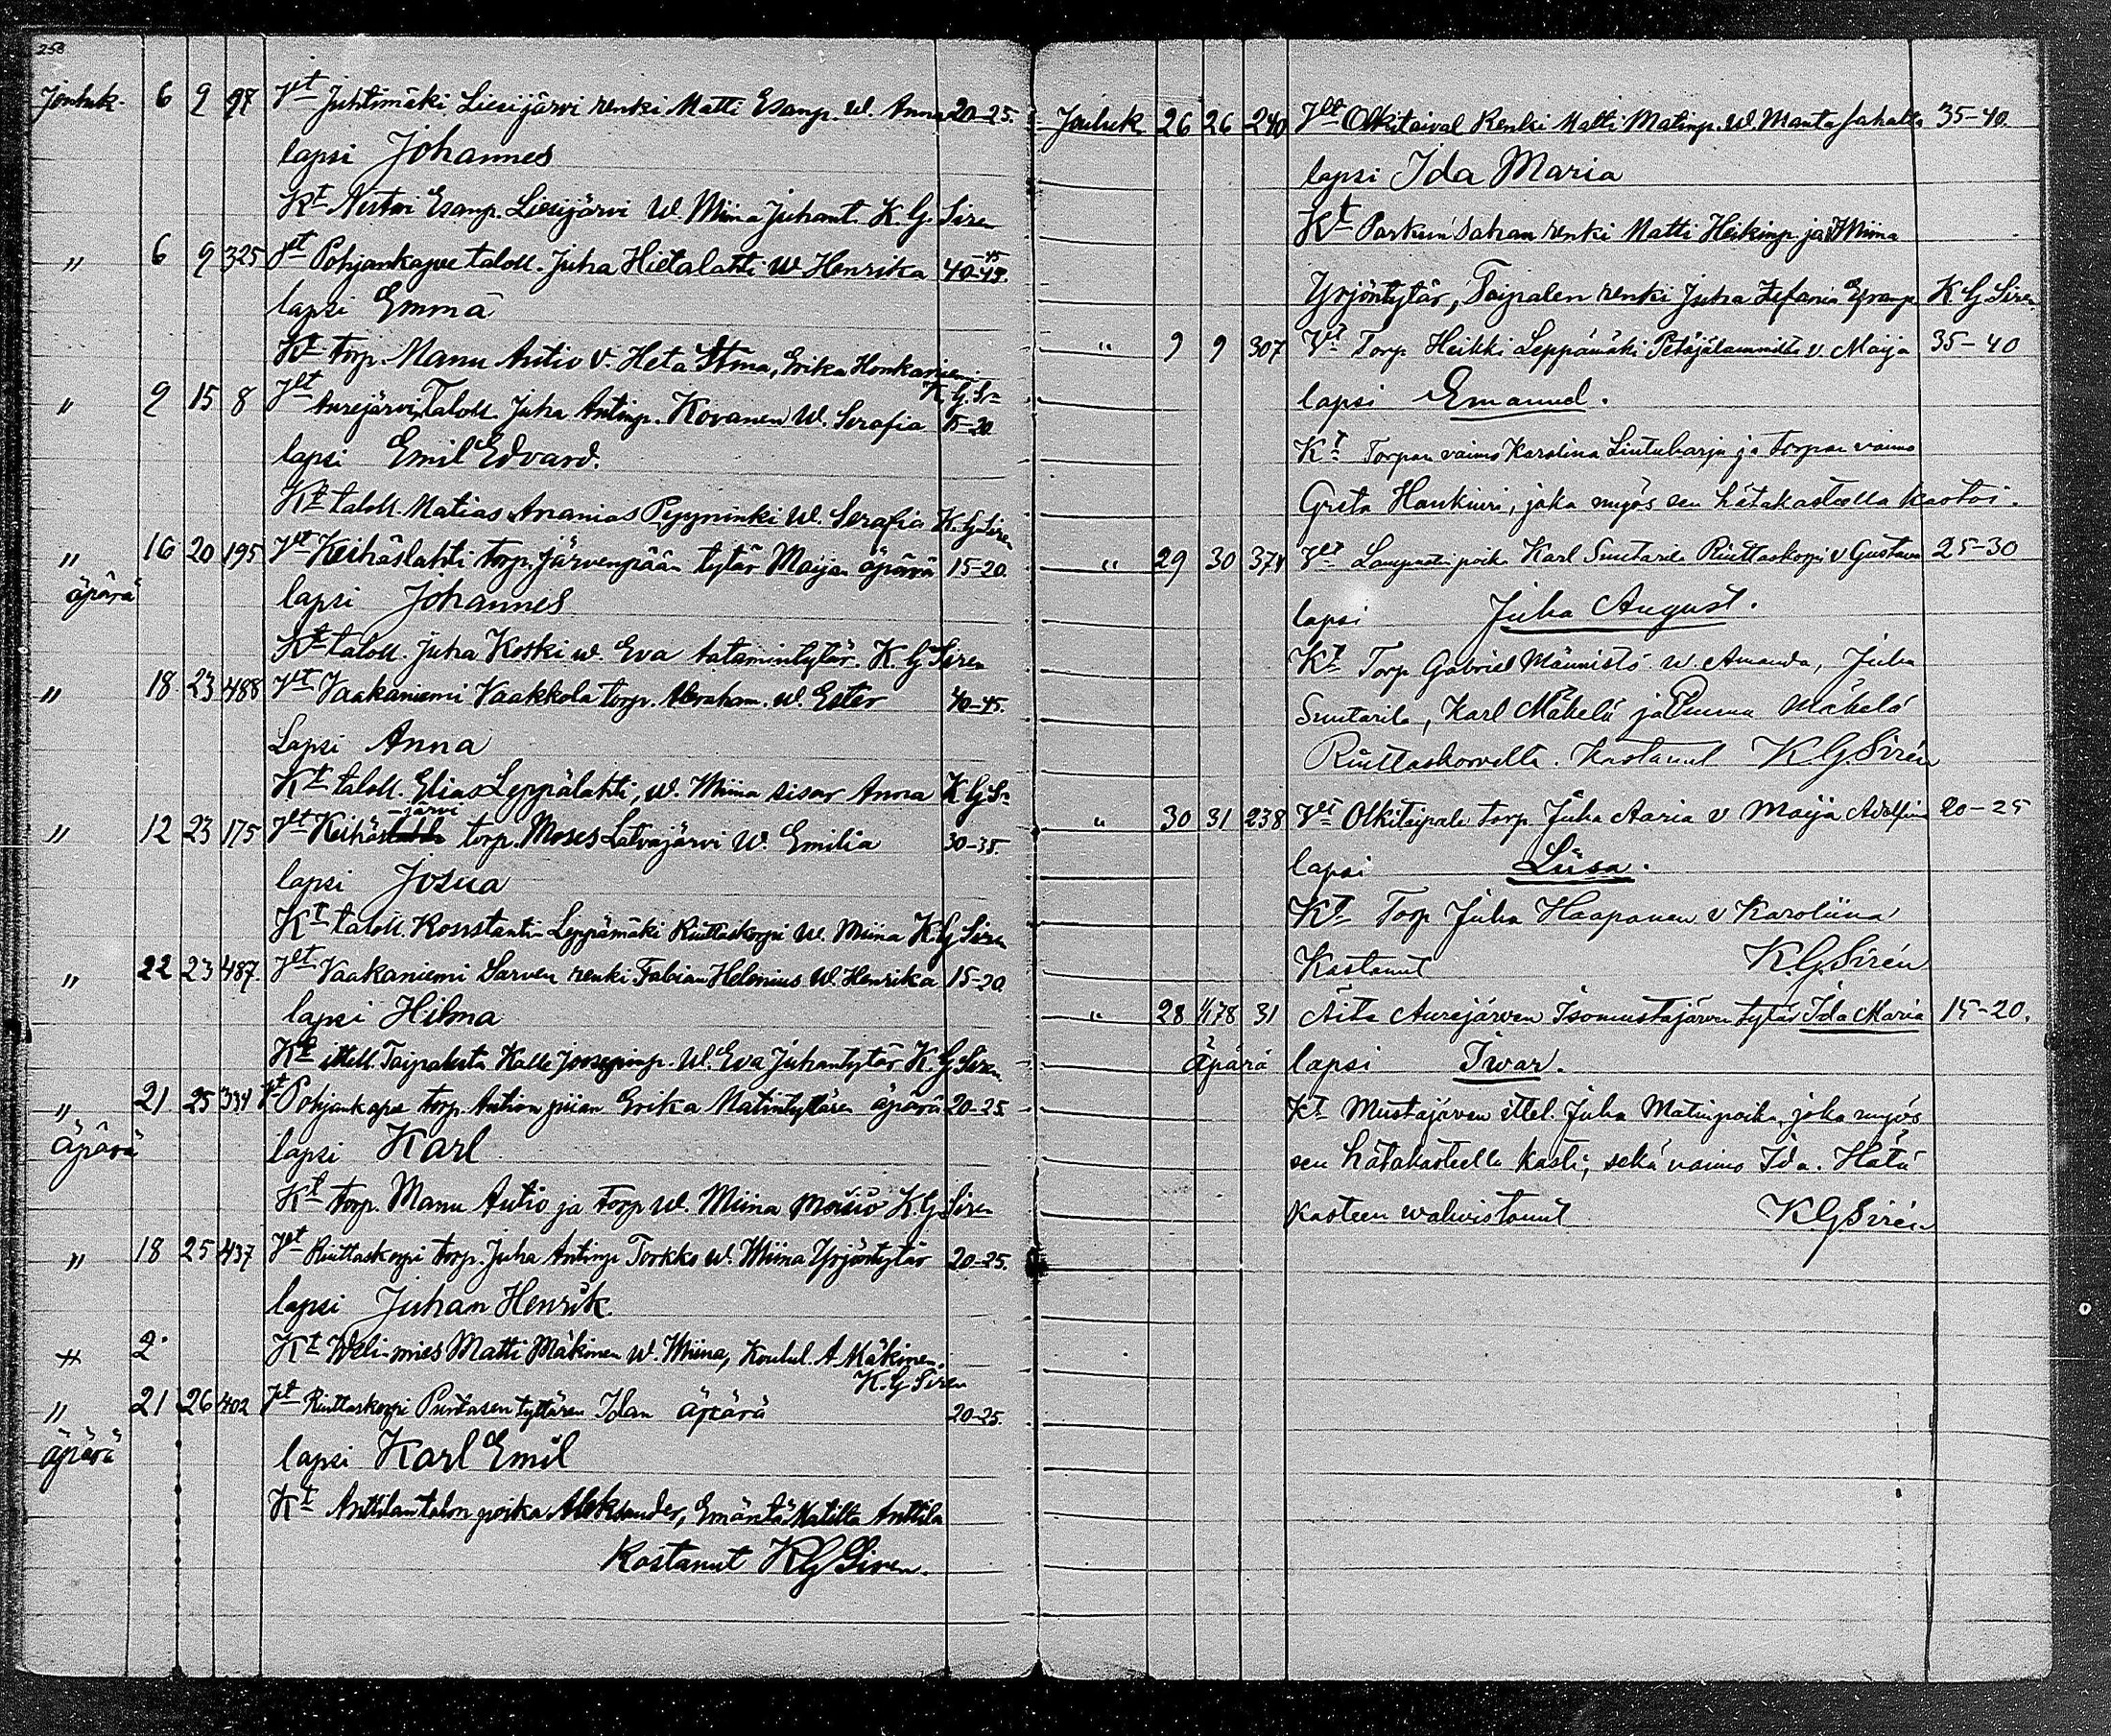 258
Jouluk. 6 9 97 Vt Juhtimäki Liesijärvi renki Matti Esanp. W. Anna 20-25.
lapsi Johannes
Kt Nestori Esanp. Liesijärvi W. Miina Juhant. K. G. Siren
" 6 9 325 Vt Pohjankapee taloll. Juha Hietalahti W Henrika 40-45.
lapsi Emma
Kt torp. Manu Autio v. Heta Stina, Erika Honkaniemi
K. G. Sn
" 9 15 8 Vt Aurejärvi, Taloll. Juha Antinp. Kovanen W. Serafia 15-20
lapsi Emil Edvard.
Kt taloll. Matias Ananias Pyyninki W. Serafia K. G Siren
" 16 20 195 Vt Keihäslahti torp. Järvenpään tytär Maijan äpärä 15-20.
äpärä lapsi Johannes
Kt taloll. Juha Koski w. Eva Aatamintytär. K. G Siren
" 18 23 488 Vt Vaakaniemi Vaakkola torp. Abraham. W. Ester 40-45.
Lapsi Anna
Kt taloll. Elias Leppälahti, W. Miina sisar Anna K G Sn
" 12 23 175 Vt Keihäsjärvi torp. Moses Latvajärvi W. Emilia 30-35.
lapsi Josua
Kt taloll. Konstanti Leppämäki Riuttaskorpi W. Miina K. G Siren
" 22 23 487. Vt Vaakaniemi Sarven renki Fabian Helenius W. Henrika 15-20
lapsi Hilma
Kt ittell. Taipaleita Kalle Joosepinp. W. Eva Juhantytär K. G Siren
" 21 25 334 Vt Pohjankapee torp. Aution piian Erika Matintyttären äpärä 20-25.
äpärä lapsi Karl
Kt torp. Manu Autio ja torp W. Miina Moisio K. G. Siren
" 18 25 437 Vt Riuttaskorpi torp. Juha Antinp Torkko W. Miina Yrjöntytär 20-25.
lapsi Juhan Henrik.
2 Kt Weli-mies Matti Mäkinen W. Miina, Koulul. A Mäkinen.
K. G Siren
" 21 26 402 Vt Riuttaskorpi Puntasen tyttären Idan äpärä 20-25.
äpärä lapsi Karl Emil
Kt Anttilan talon poika Aleksander, Emäntä Matilta Anttila
Kastanut K G Siren.
Jouluk 26 26 240 Vt Olkitaival Renki Matti Matinp. W. Manta Sahalta 35-40.
lapsi Ida Maria
Kt Parkun Sahan renki Matti Heikinp ja Miina
Yrjöntytär, Taipalen renki Juha Stefanus K. G Siren
" 9 9 307 Vt Torp Heikki Leppämäki Petäjälammilta v. Maija 35-40
lapsi Emanuel.
Kt Torpan vaimo Karolina Lintuharju ja torpan vaimo
Greta Hankiuri, joka myös sen hätäkasteella kastoi.
" 29 30 374 Vt Lampuotin poika Karl Suutarila Riuttaskorpi v Gustava 25-30
lapsi Juha August.
Kt Torp Gabriel Männistö w. Amanda, Juha
Suutarila, Karl Mäkelä ja Emma Mäkelä
Riuttaskorvelta. Kastanut K G. Sirén
" 30 31 238 Vt Olkitaipale torp Juha Aaria v Maija Adolfina 20-25
lapsi Liisa.
Kt Torp Juha Haapanen v Karoliina
Kastanut K. G. Sirén
" 28 1/1 78 31 Äiti Aurejärven Isomustajärven tytär Ida Maria 15-20.
äpärä lapsi Iwar.
Kt Mustajärven ittel. Juha Matinpoika, joka myös
sen hätäkasteella kasti, sekä vaimo Ida. Hätä
kasteen wahwistanut K G Sirén